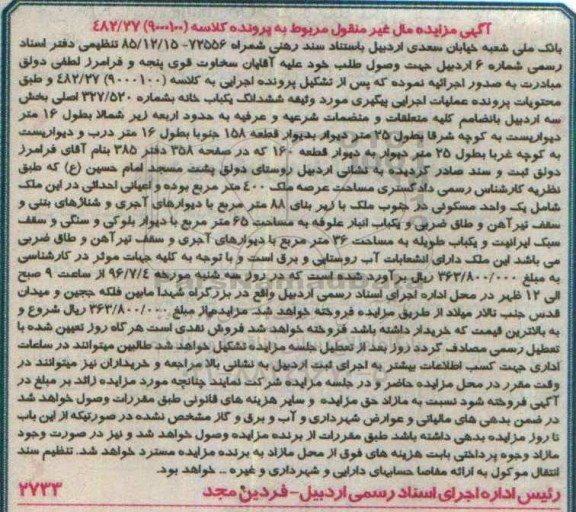 آگهی مزایده مال غیر منقول مربوط به پرونده کلاسه (۹۰۰۰۱۰۰) ۴۸۲/۲۷
بانک ملی شعبه خیابان سعدی اردبیل باستناد سند رهنی شمراه ۷۲۵۵۶- ۸۵/۱۲/۱۵ تنظیمی دفتر اسناد
رسمی شماره ۶ اردبیل جهت وصول طلب خود علیه آقایان سخاوت قوی پنجه و فرامرز لطفی دولق
مبادرت به صدور اجرائیه نموده که پس از تشکیل پرونده اجرایی به کلاسه (۹۰۰۰۱۰۰) ۴۸۲/۲۷ و طبق
محتویات پرونده عملیات اجرایی پیگیری مورد وثیقه ششدانگ یکباب خانه بشماره ۳۲۷/۵۲۰ اصلی بخش
سه اردبیل بانضمام کلیه متعلقات و منضمات شرعیه و عرفیه به حدود اربعه زیر شمالا بطول ۱۶ متر
دیواریست به کوچه شرقا بطول ۲۵ متر دیوار بدیوار قطعه ۱۵۸ جنوبا بطول ۱۶ متر درب و دیواریست
به کوچه غربا بطول ۲۵ متر دیوار به دیوار قطعه ۱۶۰ که در صفحه ۳۵۸ دفتر ۳۸۵ بنام آقای فرامرز
دولق ثبت و سند صادر گردیده به نشانی اردبیل روستای دولق پشت مسجد امام حسین (ع) که طبق
نظریه کارشناس رسمی دادگستری مساحت عرصه ملک ۴۰۰ متر مربع بوده و اعیانی احداثی در این ملک
شامل یک واحد مسکونی در جنوب ملک با زیر بنای ۸۸ متر مربع با دیوارهای آجری و شناژهای بتنی و
سقف تیرآهن و طاق ضربی و یکباب انبار علوفه به مساحت ۶۵ متر مربع با دیوار بلوکی و سنگی و سقف
سبک ایرانیت و یکباب طویله به مساحت ۳۶ متر مربع با دیوارهای آجری و سقف تیرآهن و طاق ضربی
می باشد این ملک دارای انشعابات آب روستایی و برق است و با توجه به کلیه جهات موثر در کارشناسی
به مبلغ ۳۶۳/۸۰۰/۰۰۰ ریال برآورد شده است که در روز سه شنبه مورخه ۹۶/۷/۴ از ساعت ۹ صبح
الی ۱۲ ظهر در محل اداره اجرای اسناد رسمی اردبیل واقع در بزرگراه شهدا مابین فلکه ججین و میدان
قدس جنب تالار میلاد از طریق مزایده فروخته خواهد شد. مزایده از مبلغ ۳۶۳/۸۰۰/۰۰۰ ریال شروع و
به بالاترین قیمت که خریدار داشته باشد فروخته خواهد شد فروش نقدی است هرگاه روز تعیین شده با
تعطیل رسمی مصادف گردد روز بعد از تعطیل جلسه مزایده تشکیل خواهد شد طالبین میتوانند در ساعات
اداری جهت کسب اطلاعات بیشتر به اجرای ثبت اردبیل به نشانی بالا مراجعه و خریداران نیز میتوانند در
وقت مقرر در محل مزایده حاضر و در جلسه مزایده شرکت نمایند چنانچه مورد مزایده زائد بر مبلغ در
آگهی فروخته شود نسبت به مازاد حق مزایده و سایر هزینه های قانونی طبق مقررات وصول خواهد شد
در ضمن بدهی های مالیاتی و عوارض شهرداری و آب و برق و گاز مشخص نشده در صورتیکه از این باب
تا روز مزایده بدهی داشته باشد طبق مقررات از برنده مزایده وصول خواهد شد و نیز در صورت وجود
مازاد وجوه پرداختی بابت هزینه های فوق از محل مازاد به برنده مزایده مسترد خواهد شد. تنظیم سند
انتقال موکول به ارائه مفاصا حسابهای دارایی و شهرداری و غیره ... خواهد بود.
رئیس اداره اجرای اسناد رسمی اردبیل-فردین مجد ۲۷۳۳